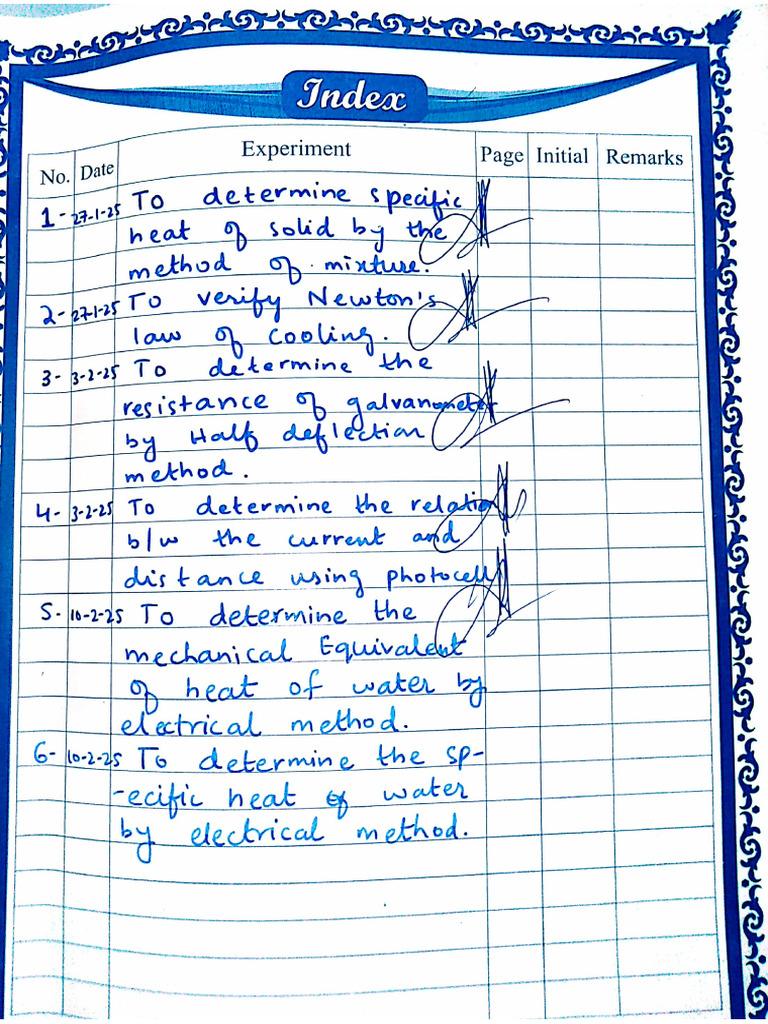 Index
No. Date Experiment Page Initial Remarks
1- 27-1-25 To determine specific
heat of solid by the
method of mixture.
2- 27-1-25 To verify Newton's
law of cooling.
3- 3-2-25 To determine the
resistance of galvanometer
by Half deflection
method.
4- 3-2-25 To determine the relation
b/w the current and
distance using photocell
5- 10-2-25 To determine the
mechanical Equivalent
of heat of water by
electrical method.
6- 10-2-25 To determine the sp-
-ecific heat of water
by electrical method.